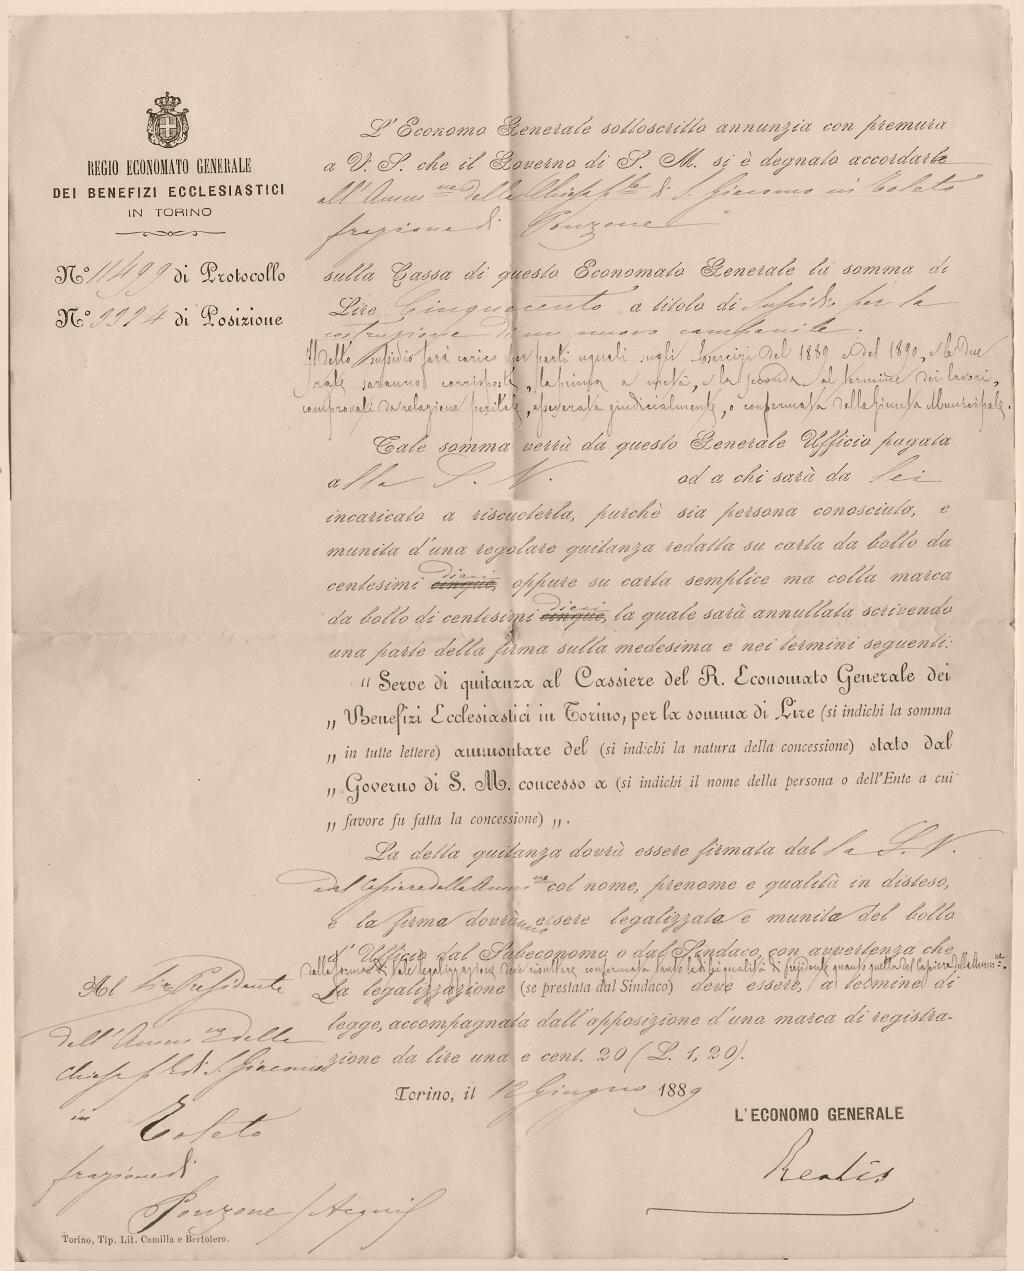 REGIO ECONOMATO GENERALE
DEI BENEFIZI ECCLESIASTICI
IN TORINO
N.° 11499 di Protocollo
N.° 9994 di Posizione
L'Economo Generale sottoscritto annunzia con premura
a V. S. che il Governo di S. M. si è degnato accordarle
all'Ammne della Chiesa ple di S. Giacomo in Toleto
frazione di Ponzone
sulla Cassa di questo Economato Generale la somma di
Lire Cinquecento a titolo di sussidio per la
costruzione di un nuovo campanile.
Il detto sussidio sarà carico per parti uguali sugli Esercizi del 1889 e del 1890, e le due
rate saranno corrisposte, la prima a metà, e la seconda al termine dei lavori,
comprovati da relazione peritale, asseverata giudicialmente, o confermata dalla Giunta Municipale.
Tale somma verrà da questo Generale Ufficio pagata
alla S. V. od a chi sarà da lei
incaricato a riscuoterla, purchè sia persona conosciuta, e
munita d'una regolare quitanza redatta su carta da bollo da
centesimi cinque dieci, oppure su carta semplice ma colla marca
da bollo di centesimi cinque dieci, la quale sarà annullata scrivendo
una parte della firma sulla medesima e nei termini seguenti:
" Serve di quitanza al Cassiere del R. Economato Generale dei
„ Benefizi Ecclesiastici in Torino, per la somma di Lire (si indichi la somma
„ in tutte lettere) ammontare del (si indichi la natura della concessione) stato dal
„ Governo di S. M. concesso a (si indichi il nome della persona o dell'Ente a cui
„ favore fu fatta la concessione) „.
La detta quitanza dovrà essere firmata dalla S. V.
e dal Cassiere della Ammne col nome, prenome e qualità in disteso,
e la firma dovrà essere legalizzata e munita del bollo
d'Ufficio dal Subeconomo o dal Sindaco, con avvertenza che
dalla formola di tale legalizzazione deve risultare confermata tanto la di Lei qualità di Presidente quanto quella del Cassiere della Ammne.
La legalizzazione (se prestata dal Sindaco) deve essere, a termine di
legge, accompagnata dall'apposizione d'una marca di registra-
zione da lire una e cent. 20 (L. 1, 20).
Torino, il 12 Giugno 1889
L'ECONOMO GENERALE
Al Sig. Presidente
dell'Ammne della
Chiesa ple di S. Giacomo
in Toleto
frazione di
Ponzone (Acqui)
Torino, Tip. Lit. Camilla e Bertolero.